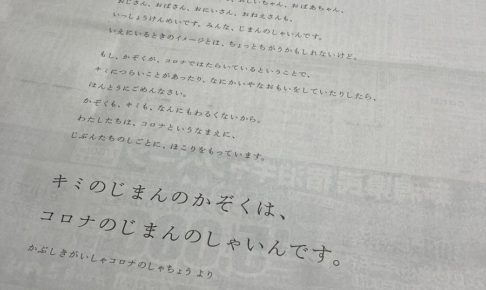 おばあちゃん、
おじさん、おばさん、おにいさん、おねえさんも、
いっしょうけんめいです。みんな、じまんのしゃいんです。
いえにいるときのイメージとは、ちょっとちがうかもしれないけど。
もし、かぞくが、コロナではたらいているということで、
キミにつらいことがあったり、なにかいやなおもいをしていたりしたら、
ほんとうにごめんなさい。
かぞくも、キミも、なんにもわるくないから。
わたしたちは、コロナというなまえに、
じぶんたちのしごとに、ほこりをもっています。
キミのじまんのかぞくは、
コロナのじまんのしゃいんです。
かぶしきがいしゃコロナのしゃちょう より